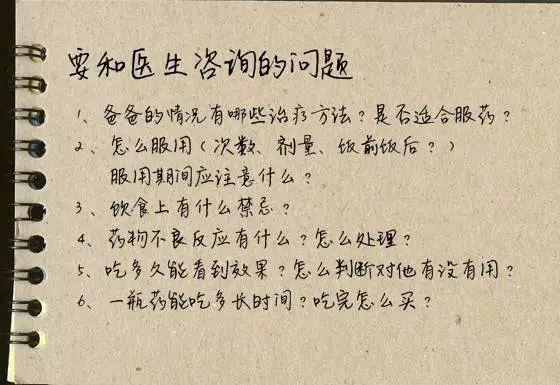 要和医生咨询的问题
1、爸爸的情况有哪些治疗方法？是否适合服药？
2、怎么服用（次数、剂量、饭前饭后？）
服用期间应注意什么？
3、饮食上有什么禁忌？
4、药物不良反应有什么？怎么处理？
5、吃多久能看到效果？怎么判断对他有没有用？
6、一瓶药能吃多长时间？吃完怎么买？